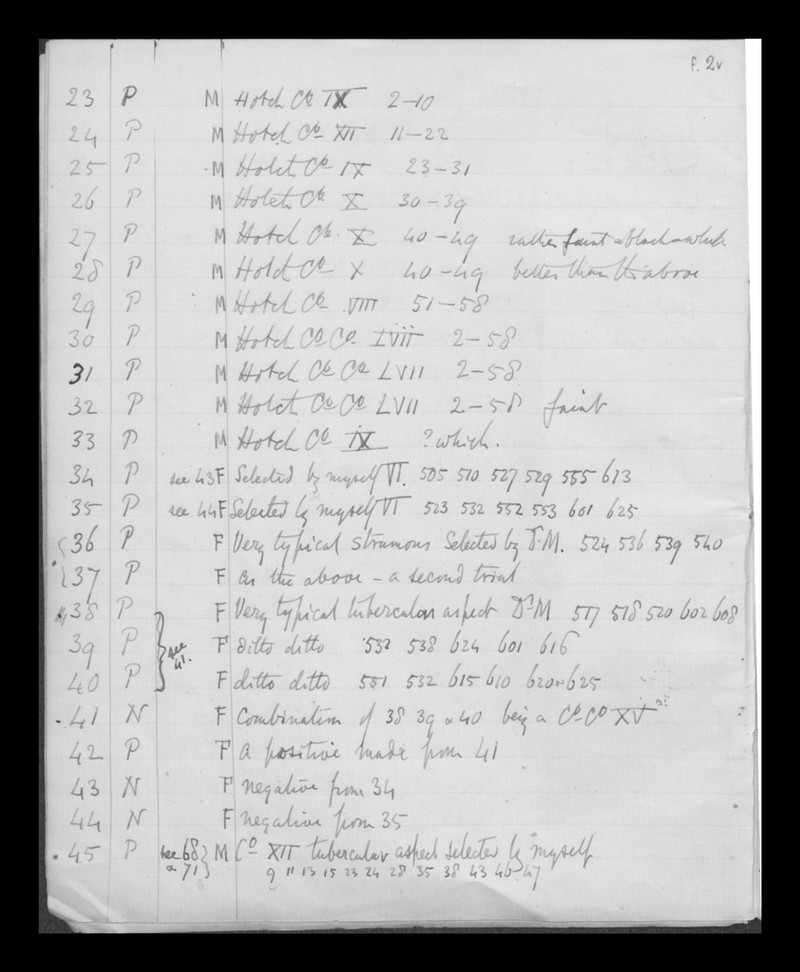 f. 2v
23 P M Hotch Co IX 2-10
24 P M Hotch Co XII 11-22
25 P M Hotch Co IX 23-31
26 P M Hotch Co X 30-39
27 P M Hotch Co X 40-49 rather faint & black & white
28 P M Hotch Co X 40-49 better than the above
29 P M Hotch Co VIII 51-58
30 P M Hotch Co Co LVII 2-58
31 P M Hotch Co Co LVII 2-58
32 P M Hotch Co Co LVII 2-58 faint
33 P M Hotch Co IX ? which.
34 P see 43 F Selected by myself VI. 505 510 527 529 555 613
35 P see 44 F Selected by myself VI 523 532 552 553 601 625
36 P F Very typical strumous Selected by Dr M. 524 536 539 540
37 P F as the above - a second trial
38 P F Very typical tubercular aspect Dr M 517 518 520 602 608
39 P see 41. F ditto ditto 532 538 624 601 616
40 P F ditto ditto 551 532 615 610 620 625
41 N F Combination of 38 39 & 40 being a Co Co XV
42 P F A positive made from 41
43 N F negative from 34
44 N F negative from 35
45 P see 68 & 71 M Co XII tubercular aspect selected by myself
9 11 13 15 23 24 28 35 38 43 46 47